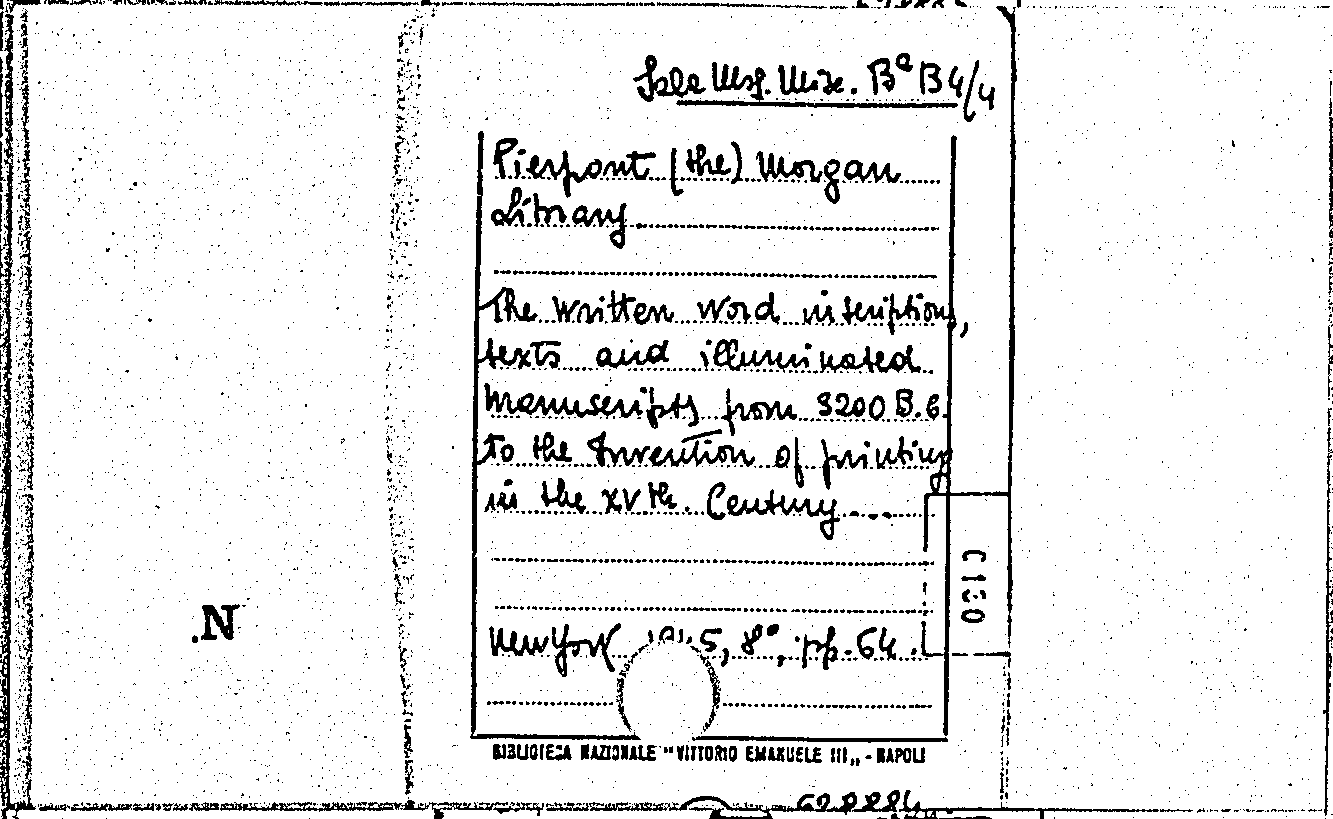 Sala Mss. Misc. Bª B 4/4
Pierpont (the) Morgan
Library
The written word inscriptions,
texts and illuminated
manuscripts from 3200 B.C.
to the Invention of printing
in the XVth. Century...
C 130
New York 1945, 8°, pp. 64.
BIBLIOTECA NAZIONALE "VITTORIO EMANUELE III„ - NAPOLI
.N